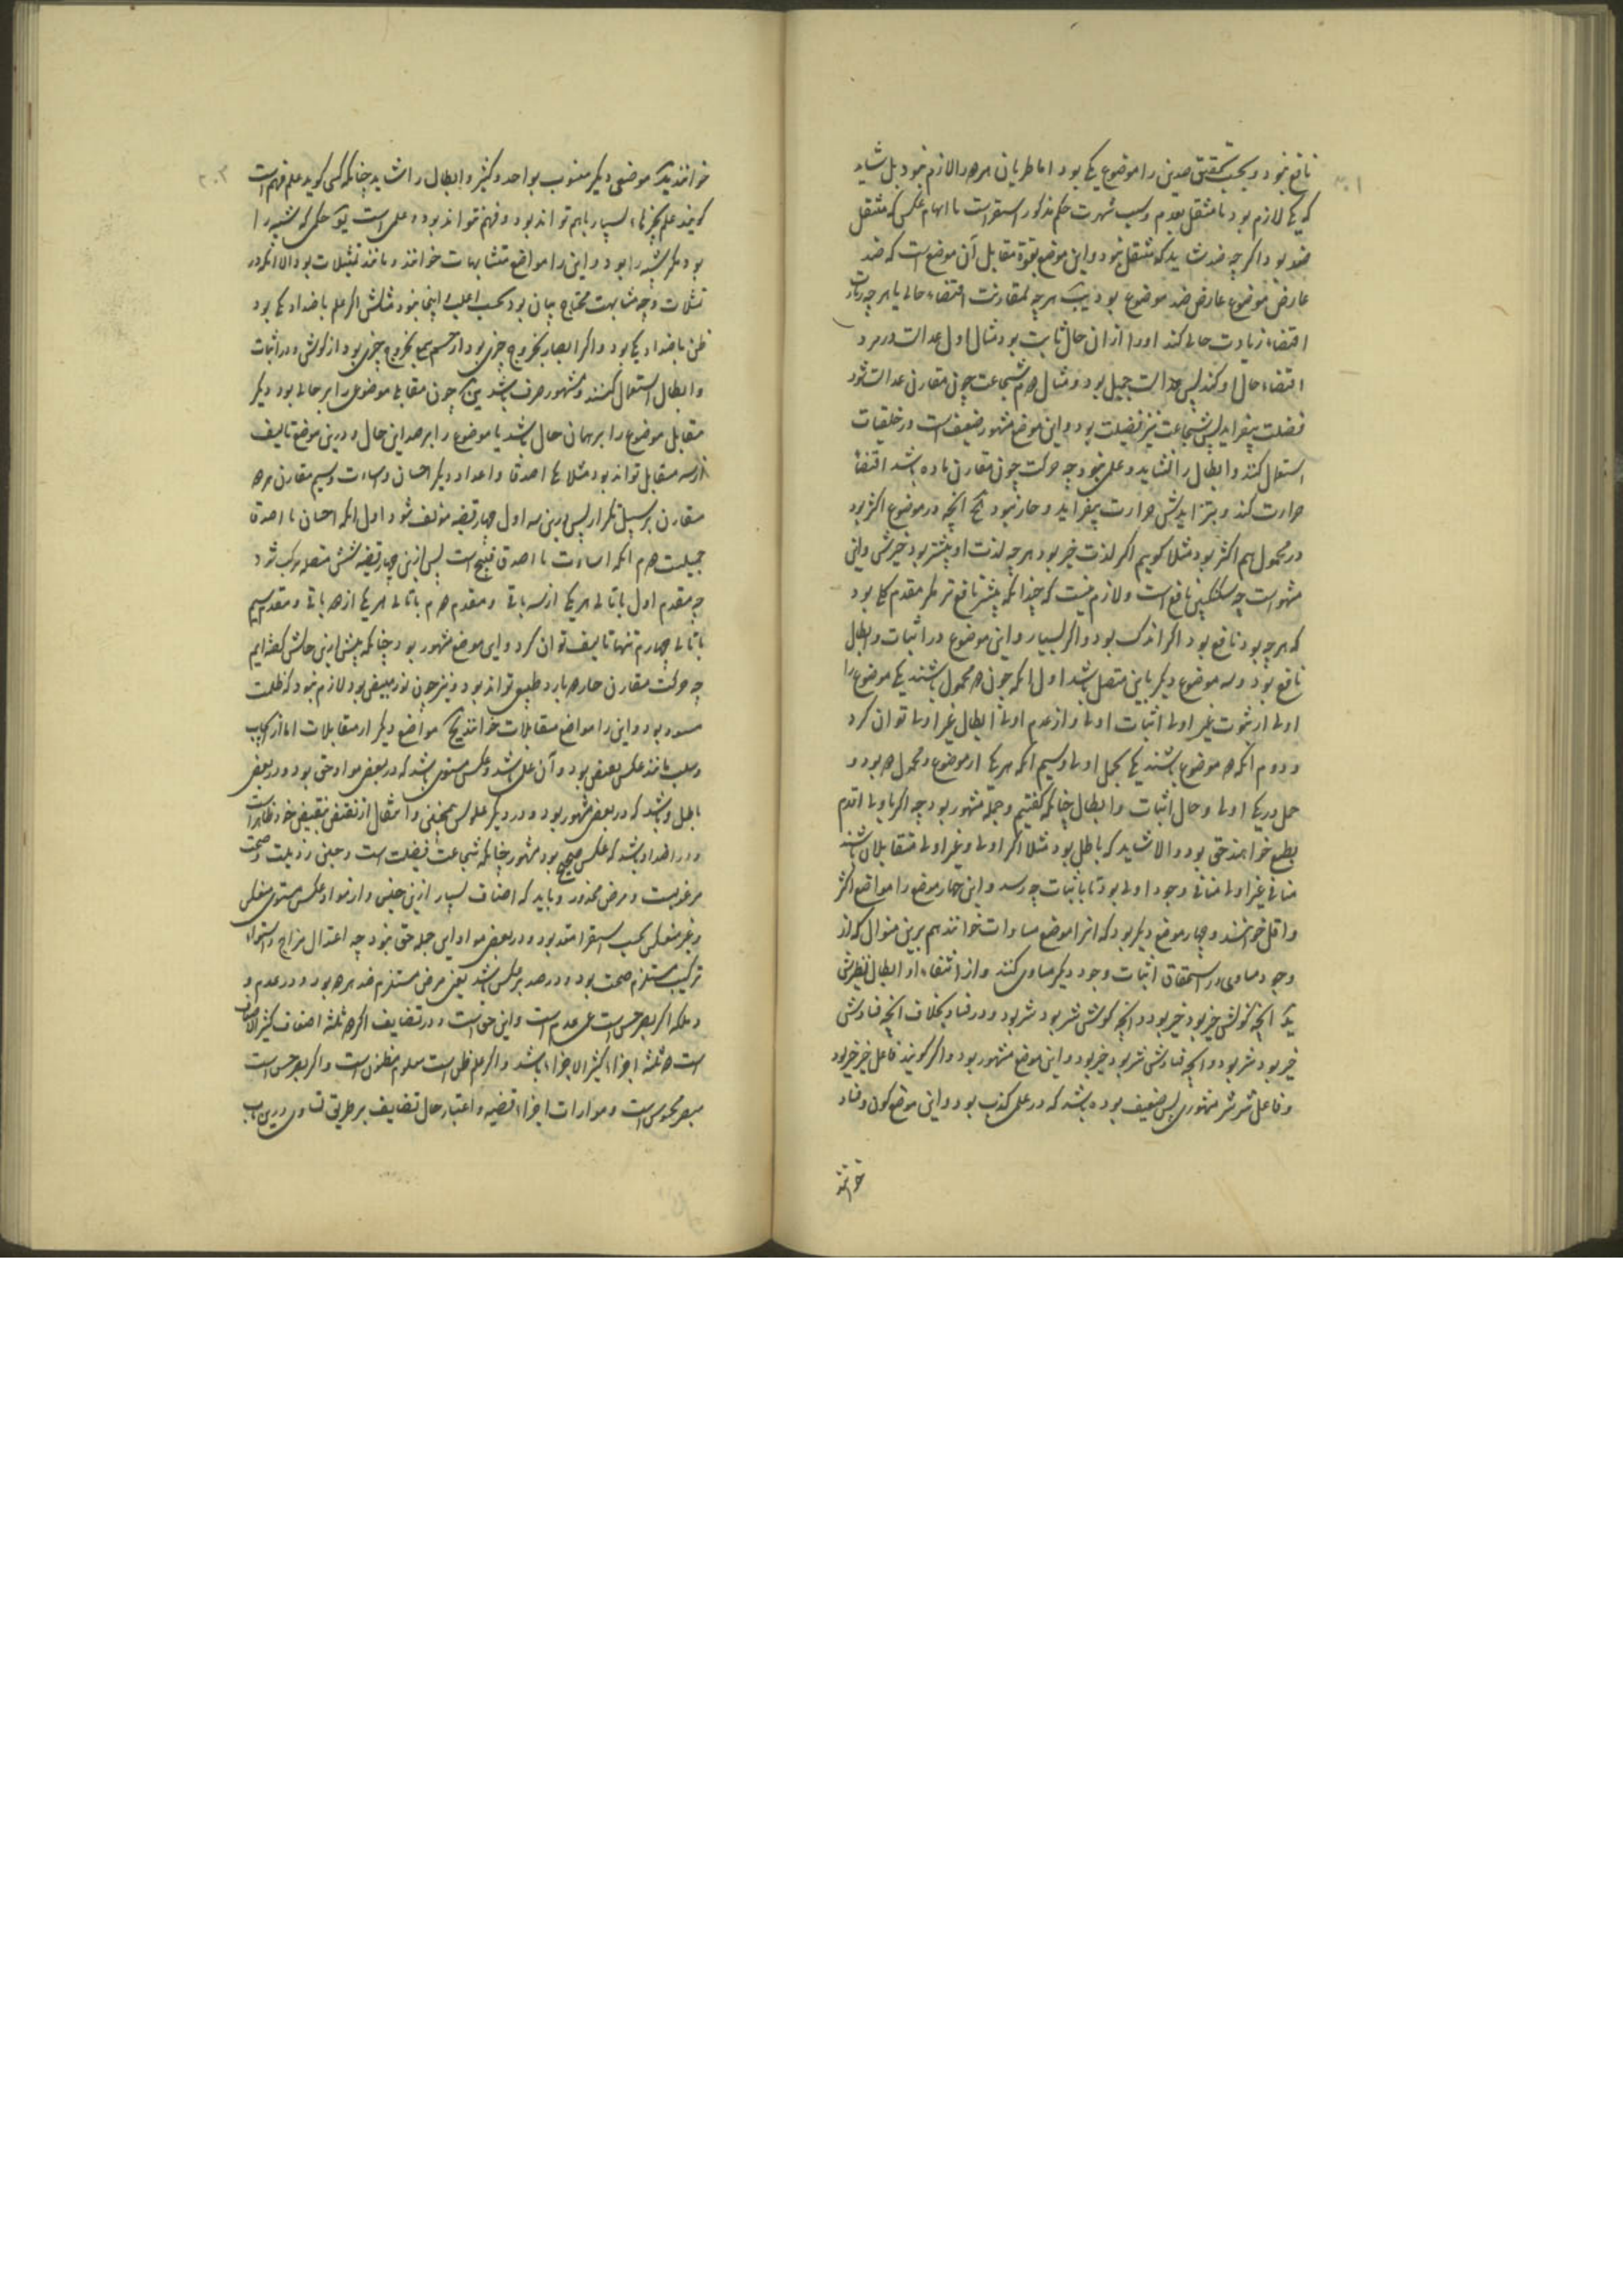 نافع نبود و بحسب تحقیق ضدین را موضوع یکی بود اما طریان هر دو لازم نبود بل شاید
که یکی لازم بود یا منتقل بعدم و سبب شهرت حکم مذکور استقراست با ایهام عکس که منتقل
ضد بود اگر چه ضد شاید که منتقل نبود و این موضع بقوة مقابل آن موضع است که ضد
عارض موضوع عارض ضد موضوع بود یب هر چه بمقارنت اقتضاء حالی یا
اقتضاء زیادت حالی کند او را از ان حال ثابت بود مثال اول عدالت در مرد
اقتضاء حال او کند پس عدالت جمیل بود و مثال دوم شجاعت چون مقارن عدالت شود
فضلت بیفزاید پس شجاعت نیز فضیلت بود و این موضع مشهور ضعیف است در خلقیات
استعمال کنند و ابطال را نشاید و علمی نبود چه حرکت چون مقارن ماده باشد اقتضاء
حرارت کند و بتزایدش حرارت بیفزاید و حار نبود یج انچه در موضوع اکثر بود
در محمول هم اکثر بود مثلا کوییم اگر لذت خیر بود هر چه لذت او بیشتر بود خیرش و این
مشهور است چه سکنکبین نافع است و لازم نیست که چندانکه بیشتر نافع تر مگر مقدم کلی بود
که هر چه بود نافع بود اگر اندک بود و اگر بسیار و این موضوع در اثبات و ابطال
نافع بود و سه موضوع دیگر باین متصل باشد اول انکه چون دو محمول باشند یکی موضوع را
اولی از ثبوت غیر اولی اثبات اولی و از عدم اولی ابطال غیر اولی توان کرد
و دوم انکه دو موضوع باشند یکی بحمل اولی و سیم انکه هر یکی از موضوع و محمول دو بود و
حمل در یکی اولی و حال اثبات و ابطال چنانکه کفتیم و جمله مشهور بود چه اگر باولی اقدم
بطبع خواهند حق بود و الا شاید که باطل بود مثلا اگر اولی و غیر اولی متقابلان باشند
منافی غیر اولی منافی وجود اولی بود تا باثبات چه رسد و این چهار موضع را مواضع اکثر
و اقل خوانند و چهار موضع دیگر بود که انرا موضع مساوات خوانند هم برین منوال که از
وجود مساوی در استحقاق اثبات وجود دیگر مساوی کنند و از انتفاء او ابطال نظیرش
ید انچه کونش خیر بود خیر بود و انچه کونش شر بود شر بود و در فساد بخلاف انچه فسادش
خیر بود شر بود و انچه فسادش شر بود خیر بود و این موضع مشهور بود و اگر کویند فاعل خیر خیر بود
و فاعل شر شر مشهوری بس ضعیف بوده باشد که در علمی کذب بود و این موضع کون و فساد
خوانند
خوانند یه موضعی دیگر منسوب بواحد و کثیر و ابطال را شاید چنانکه کسی کوید علم فهم است
کویند علم بچیزهاء بسیار باهم تواند بود و فهم نتواند بود و علمی است یو حکمی که شبیه را
بود مگر شبیه را بود و این را مواضع متشابهات خوانند و مانند تمثیلات بود الا انکه در
تمثیلات وجه مشابهت محتاج بیان بود بحسب اغلب و اینجا نبود مثلش اگر علم باضداد یکی بود
ظن باضداد یکی بود و اگر ابصار بخروج چیزی بود از چشم سمع بخروج چیزی بود از کوش و در اثبات
و ابطال استعمال کنند و مشهور صرف باشد یز چون مقابل موضوعی را بر حالی بود دیگر
مقابل موضوع را بر همان حال باشد یا موضوع را بر ضد این حال و درین موضع تالیف
از سه مقابل تواند بود مثلا یکی اصدقا و اعدا و دیگر احسان و اساءت و سیم مقارن هر دو
مقارن بر سبیل تکرار پس درین سه اول چهار قضیه مؤلف شود اول انکه احسان با اصدقا
جمیلست دوم انکه اساءت با اصدقا قبیح است پس ازین چهار قضیه شش متصله مرکب شود
چه مقدم اول با تالی هر یکی از سه باقی و مقدم دوم با تالی هر یکی از دو باقی و مقدم سیم
با تالی چهارم تنها تالیف توان کرد و این موضع مشهور بود چنانکه پیش ازین حالش کفته‌ایم
چه حرکت مقارن حار و بارد طبیعی تواند بود و نیز چون نور مبیض بود لازم نبود که ظلمت
مسود بود و این را مواضع مقابلات خوانند یح مواضع دیگر از مقابلات اما از ایجاب
و سلب مانند عکس نقیض بود و آن علمی باشد و عکس مستوی باشد که در بعضی مواد حق بود و در بعضی
باطل و باشد که در بعضی مشهور بود و در دیگر عکوس همچنین و انتقال از نقیض بنقیض خود ظاهر است
و در اضداد باشد که عکس صحیح بود مشهور چنانکه شجاعت فضیلت است و جبن رذیلت و صحت
مرغوبست و مرض محذور و باید که اصناف بسیار ازین جنس و از مواد عکس مستوی منعکس
و غیر منعکس بحسب استقرا معد بود و در بعضی مواد این جمله حق نبود چه اعتدال مزاج و استواء
ترکیب مستلزم صحت بود و در ضد بر عکس باشد یعنی مرض مستلزم ضد هر دو بود و در عدم و
و ملکه اگر بصر حس است عمی عدم است و این حق است و در تضایف اگر دو ثلثه اضعاف کثیر الاضعاف
است دو ثلثه اجزاء کثیر الاجزاء باشد و اگر علم ظن است معلوم مظنون است و اگر بصر حس است
مبصر محسوس است و موارات اجزاء قضیه و اعتبار حال تضایف بر طریق تساوی درین باب